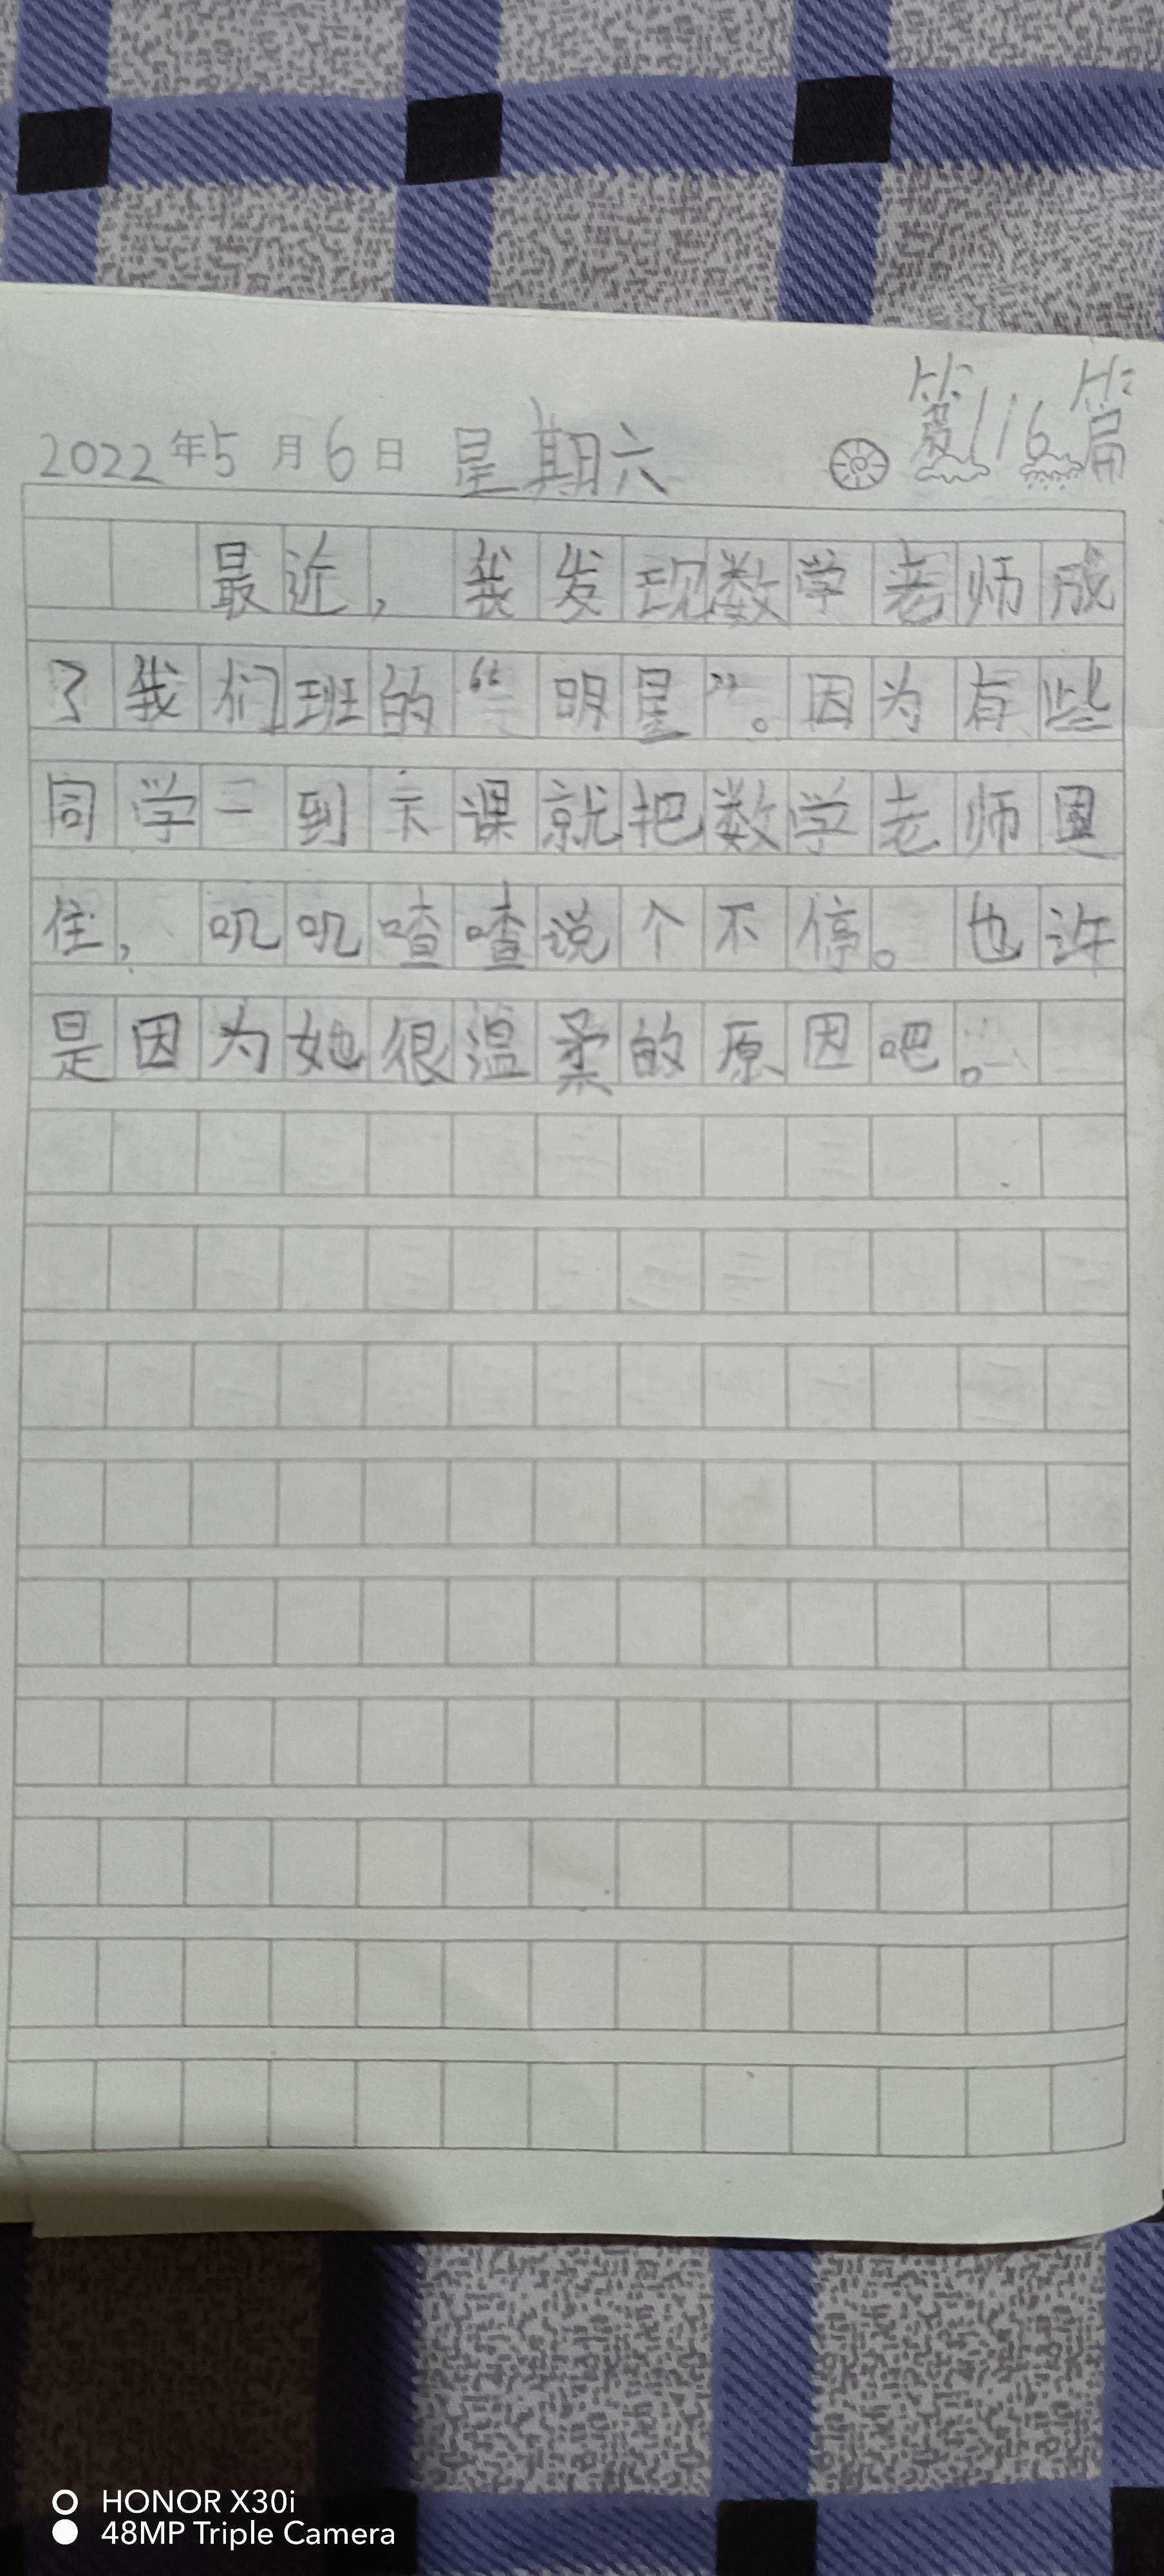 第116篇
2022年5月6日 星期六
最近，我发现数学老师成
了我们班的“明星”。因为有些
同学一到下课就把数学老师围
住，叽叽喳喳说个不停。也许
是因为她很温柔的原因吧。
HONOR X30i
48MP Triple Camera